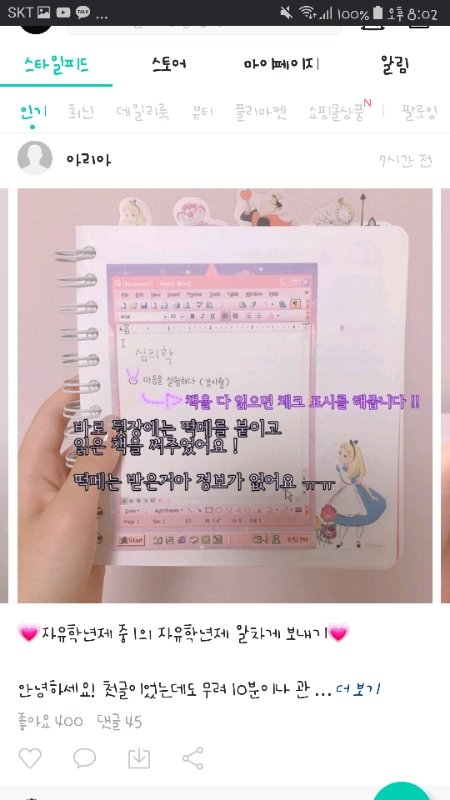 SKT
100%
오후 8:02
스타일피드 스토어 마이페이지 알림
인기 최신 데일리룩 뷰티 플리마켓 쇼핑몰상품 N 팔로잉
아리아 7시간 전
Document1 - Naive Word
File Edit View Insert Format Tools Table Window Help
Arial 10 B I U
심리학
마음을 실험하다 (강사월)
책을 다 읽으면 체크 표시를 해줍니다 !!
바로 뒷장에는 떡메를 붙이고
읽은 책을 써주었어요 !
떡메는 받은거아 정보가 없어요 ㅠㅠ
Draw AutoShapes
Page 1 Sec 1 1/1 At 1.0" Ln 5 Col 1
Start 8:52 PM
자유학년제 중1의 자유학년제 알차게 보내기
안녕하세요! 첫글이었는데도 무려 10분이나 관 ... 더 보기
좋아요 400 댓글 45